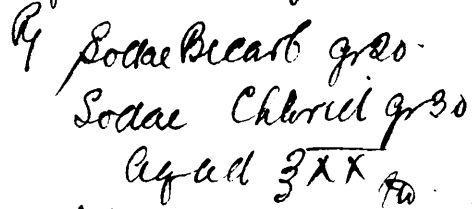 ℞ Sodae Bicarb gr 20.
Sodae Chlorid gr 30
Aquae ʒ XX